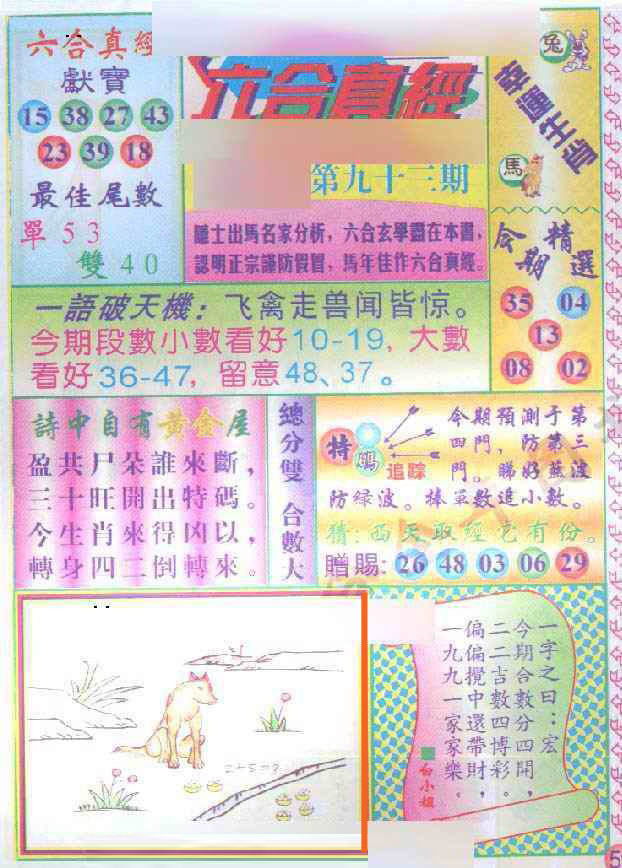 六合真經
獻寶
15 38 27 43
23 39 18
最佳尾數
單 53
雙 40
六合真經
第九十三期
隱士出馬名家分析，六合玄學盡在本書，
認明正宗謹防假冒，馬年佳作六合真經。
兔
幸運生肖
馬
今期精選
35 04
13
08 02
一語破天機：飞禽走兽闻皆惊。
今期段數小數看好10-19，大數
看好36-47，留意48、37。
詩中自有黃金屋
盈共尸朵誰來斷，
三十旺開出特碼。
今生肖來得凶以，
轉身四二倒轉來。
總分雙 合數大
特碼
追踪
今期預測于第
四門，防第三
門。睇好蓝波
防绿波。捧單数進小數。
猜：西天取經它有份。
贈賜：26 48 03 06 29
2+5=?
一字之曰：宏
今期合數分四開，
二二吉數四博彩。
偏偏攪中還帶財，
一九九一家家樂。
白小姐
5